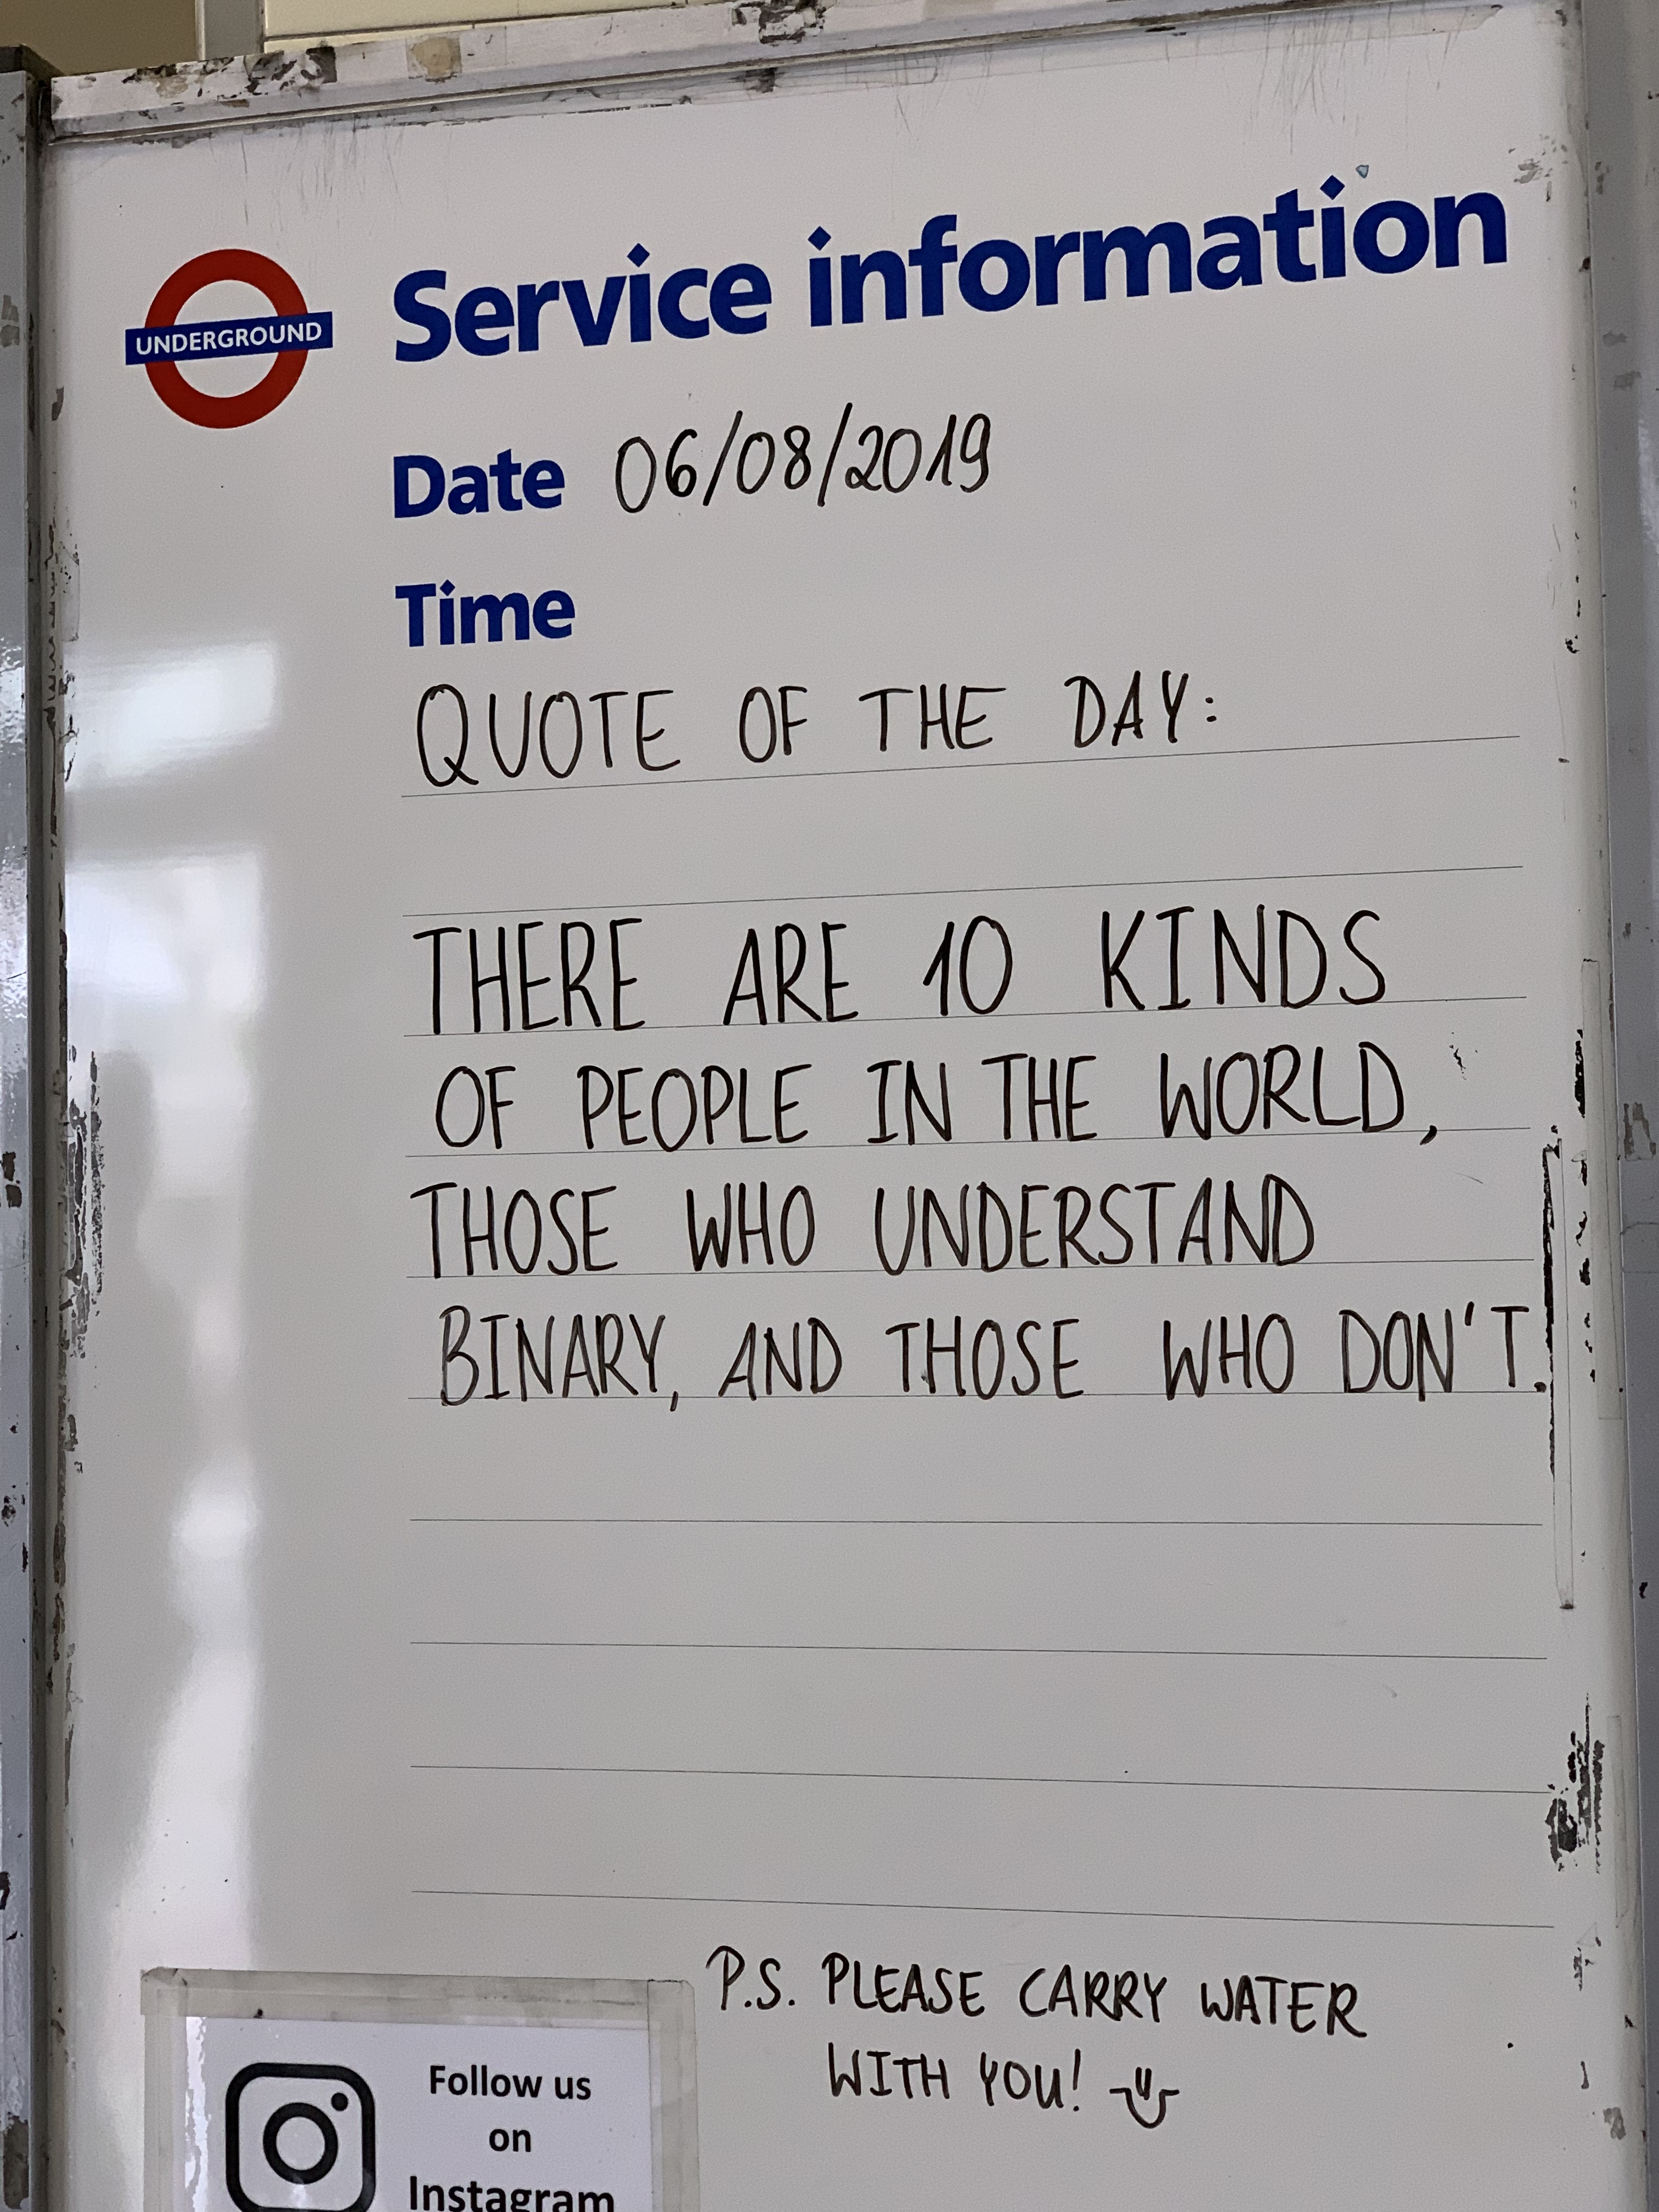 UNDERGROUND
Service information
Date 06/08/2019
Time
QUOTE OF THE DAY:
THERE ARE 10 KINDS
OF PEOPLE IN THE WORLD,
THOSE WHO UNDERSTAND
BINARY, AND THOSE WHO DON'T.
P.S. PLEASE CARRY WATER
WITH YOU!
Follow us
on
Instagram